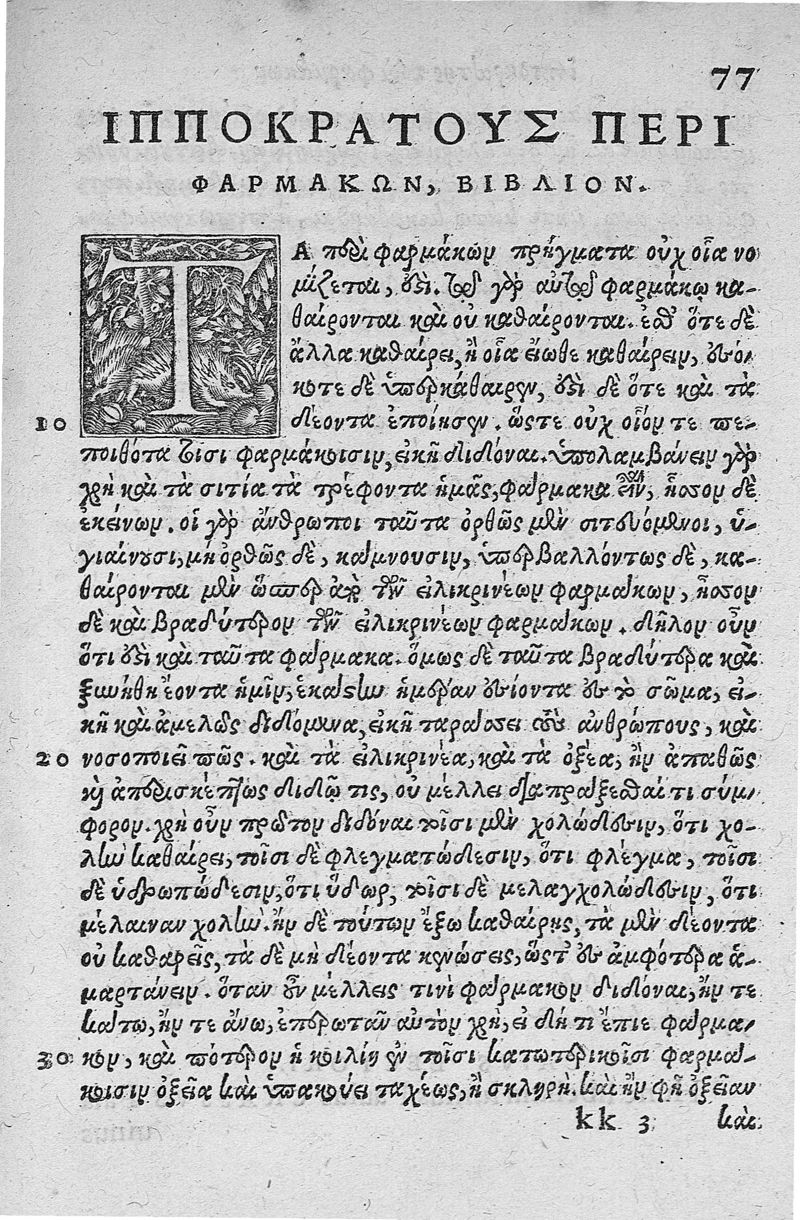 77
ΙΠΠΟΚΡΑΤΟΥΣ ΠΕΡΙ
ΦΑΡΜΑΚΩΝ, ΒΙΒΛΙΟΝ.
ΤΑ περὶ φαρμάκων πρήγματα οὐχ οἷα νο
μίζεται, ὅτι. τῷ γὸ αὐτῷ φαρμάκῳ κα-
θαίρονται καὶ οὐ καθαίρονται. ἐσθ' ὅτε δὲ
ἄλλα καθαίρει, ἢ οἷα εἴωθε καθαίρειν, ἐνό-
κοτε δὲ ὑπερκάθαιρεν, ὅτι δὲ ὅτε καὶ τὰ
10 δέοντα ἐποίησεν. ὥστε οὐχ οἷόν τε πε-
ποιθότα τοῖσι φαρμάκοισιν, εἰκῆ διδόναι. ὑπολαμβάνειν γὰρ
χρὴ καὶ τὰ σιτία τὰ τρέφοντα ἡμᾶς, φάρμακα εἶναι, ἧσσον δὲ
ἐκείνων. οἱ γὰρ ἄνθρωποι ταῦτα ὀρθῶς μὲν σιτευόμενοι, ὑ-
γιαίνουσι, μὴ ὀρθῶς δὲ, κάμνουσιν, ὑπερβαλλόντως δὲ, κα-
θαίρονται μὲν ὥσπερ ἀπὸ τῶν εἰλικρινέων φαρμάκων, ἧσσον
δὲ καὶ βραδύτερον τῶν εἰλικρινέων φαρμάκων. δῆλον οὖν
ὅτι ὅτι καὶ ταῦτα φάρμακα. ὅμως δὲ ταῦτα βραδύτερα καὶ
ξυνήθη ἔοντα ἡμῖν, ἑκάστην ἡμέραν ἐνίοντα ἐν τὸ σῶμα, εἰ-
κῆ καὶ ἀμελῶς διδόμενα, εἰκῆ ταράσσει τοὺς ἀνθρώπους, καὶ
20 νοσοποιεῖ πῶς. καὶ τὰ εἰλικρινέα, καὶ τὰ ὀξέα, ἢν ἀπαθῶς
καὶ ἀπερισκέπτως διδῷ τις, οὐ μέλλει διαπράξεσθαί τι σύμ-
φορον. χρὴ οὖν πρῶτον διδόναι τοῖσι μὲν χολώδεσιν, ὅτι χο-
λὴν καθαίρει, τοῖσι δὲ φλεγματώδεσιν, ὅτι φλέγμα, τοῖσι
δὲ ὑδρωπώδεσιν, ὅτι ὕδωρ, τοῖσι δὲ μελαγχολώδεσιν, ὅτι
μέλαιναν χολὴν. ἢν δὲ τούτων ἔξω καθαίρῃς, τὰ μὲν δέοντα
οὐ καθαρεῖς, τὰ δὲ μὴ δέοντα κενώσεις, ὥστ' ἐν ἀμφότερα ἁ-
μαρτάνειν. ὅταν οὖν μέλλεις τινὶ φάρμακον διδόναι, ἤν τε
κάτω, ἤν τε ἄνω, ἐπερωτᾶν αὐτὸν χρὴ, εἰ δή τι ἔπιε φάρμα-
30 κον, καὶ πότερον ἡ κοιλίη ἐν τοῖσι κατωτερικοῖσι φαρμά-
κοισιν ὀξεῖα καὶ ὑπακούει ταχέως, ἢ σκληρὴ. καὶ ἢν φῇ ὀξεῖαν
kk 3 καὶ